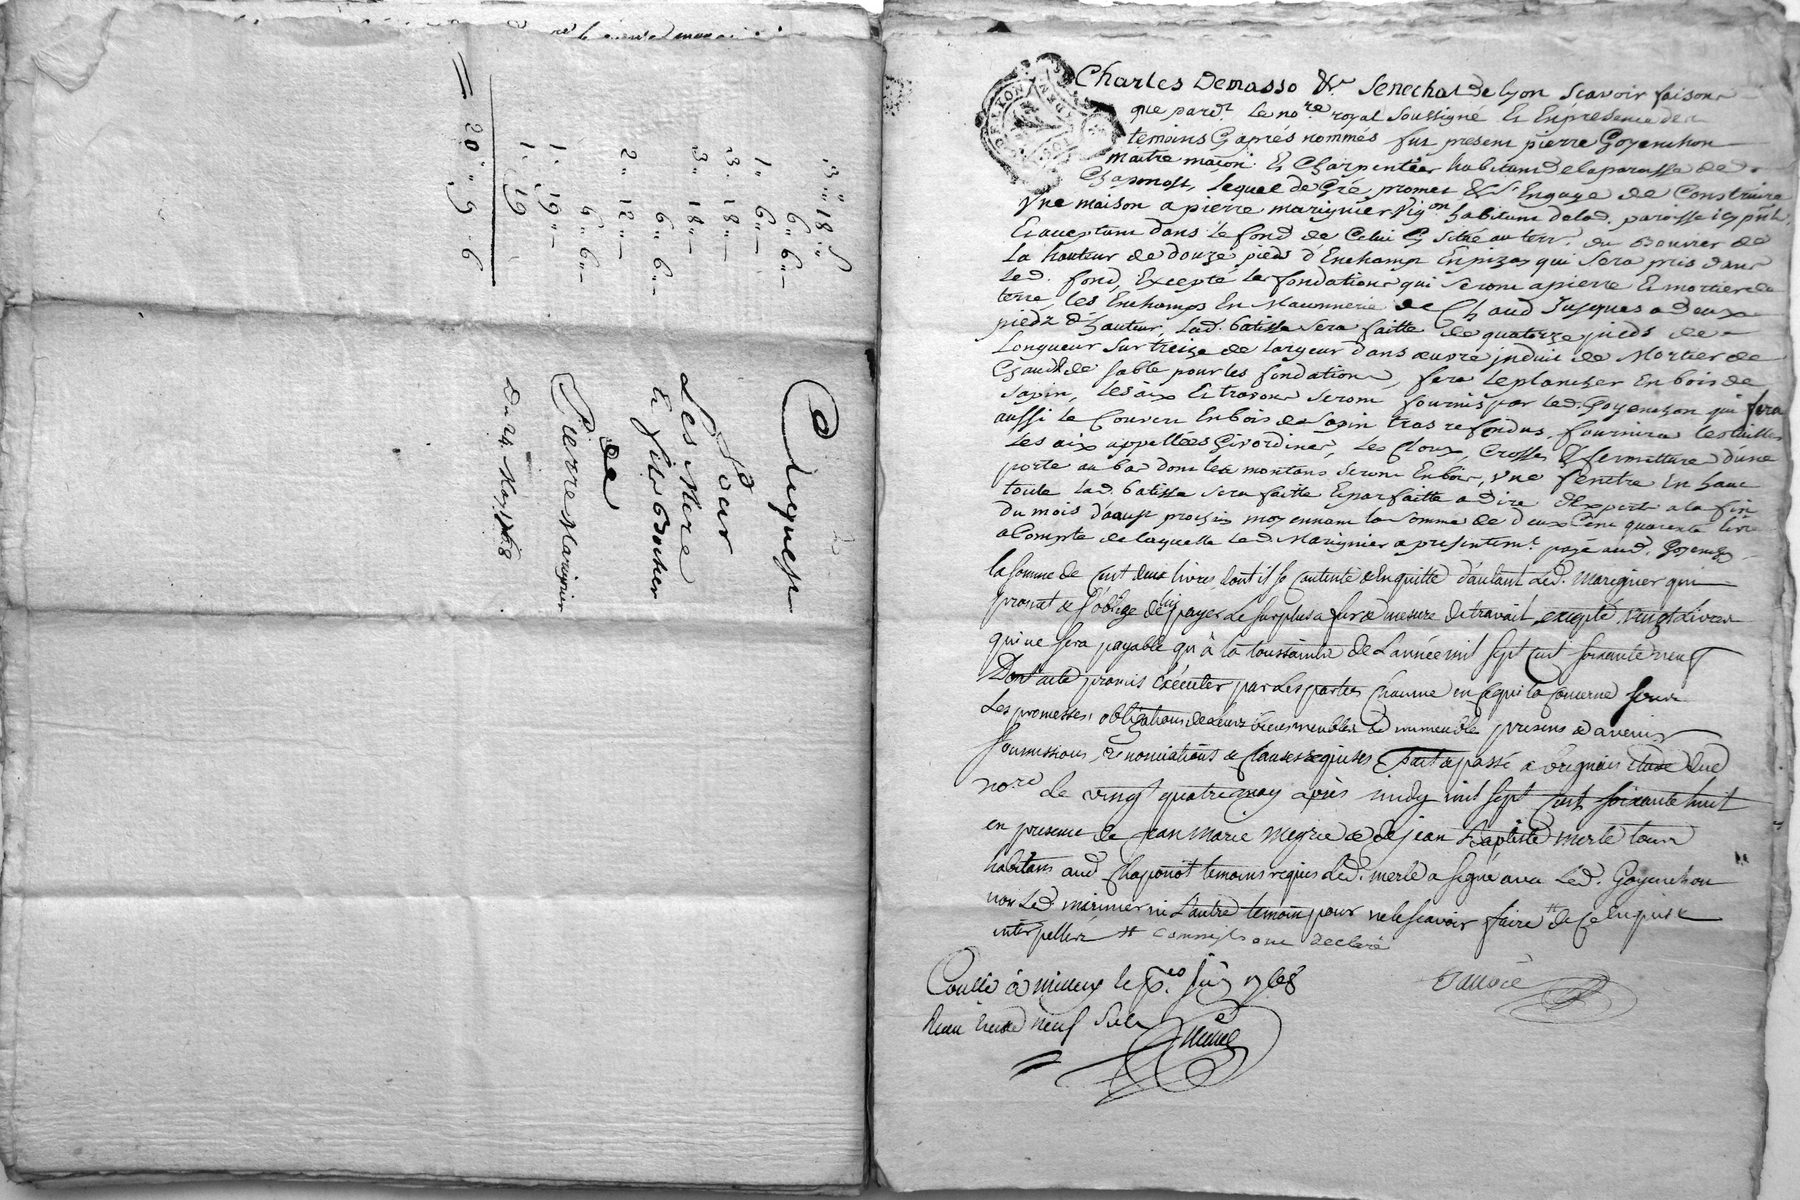 3" 18"
6" 6"
1" 6" —
3" 18" —
3" 18" —
6" 6"
2" 12" —
6" 6"
1" 19" —
1" 19
20" 5" 6
Pour
Les Mere
et fils Bouher
de
Pierre Marignier
Du 24 May 1768
Charles Demasso &r Senechal de Lyon scavoir faisons
que pardt Le nore royal soussigné Et En présence des
temoins Cy aprés nommés fut present pierre Goyenchon
maitre maçon Et Charpentier habitant de la paroisse de
Chaponost, Lequel de Gré promet & s'Engage de Construire
Vne maison a pierre marignier Vigon habitant de lad. paroisse icy pnt
Et acceptant dans Le fond de Celui Cy Situé au terr. du Bouver de
La hauteur de douze pieds d'Enchamp En pizay qui sera pris dans
led. fond, Excepté les fondations qui seront a pierre Et mortier de
terre, les Enchamps En Maconnerie de Chaud Jusques a deux
pieds d'hauteur, Lad. batisse sera faitte de quatorze pieds de
Longueur sur treize de Largeur dans œuvre induit de Mortier de
Chaud de sable pour les fondations, fera le plancher En bois de
sapin, les aix Et travons seront fournis par led. Goyenchon qui fera
aussi le Couvert En bois de sapin tras refondus, fournira les tuilles
Les aix appellées Givordines, Les Cloux, Crosses & fermetture d'une
porte au bas dont les montans seront En bois, vne fenêtre En haut
toute lad. batisse sera faitte Et parfaitte a dire d'Experts a la fin
du mois d'aoust prochain moyennant la somme de deux Cent quarente livres
a Compte de laquelle Led. Marignier a presentemt payé aud. Goyenchon
la somme de cent deux livres dont il se contente & en quitte d'autant Led. Marignier qui
promet & s'oblige de lui payer Le surplus a fur & mesure du travail excepté vingt Livres
qui ne sera payable qu'à la toussaint de L'année mil sept cent soixante neuf
Dont acte promis Exécuter par Les parties chacune en ce qui la concerne sous
Les promesses, obligations de leurs biens meubles & immeubles presens & avenir
soumissions, rénonciations & clauses requises fait & passé a brignais étude dud
nore Le vingt quatre may après midy mil sept cent soixante huit
en presence de Jean Marie & de jean Baptiste merle tous
habitans aud Chaponost temoins requis Led. merle a signé avec Led. Goyenchon
non Led. ni L'autre temoin pour ne le scavoir faire de ce enquis &
interpellés # comme ils ont declaré
Conllé à Millery le juin 1768
Reçu trente neuf sols